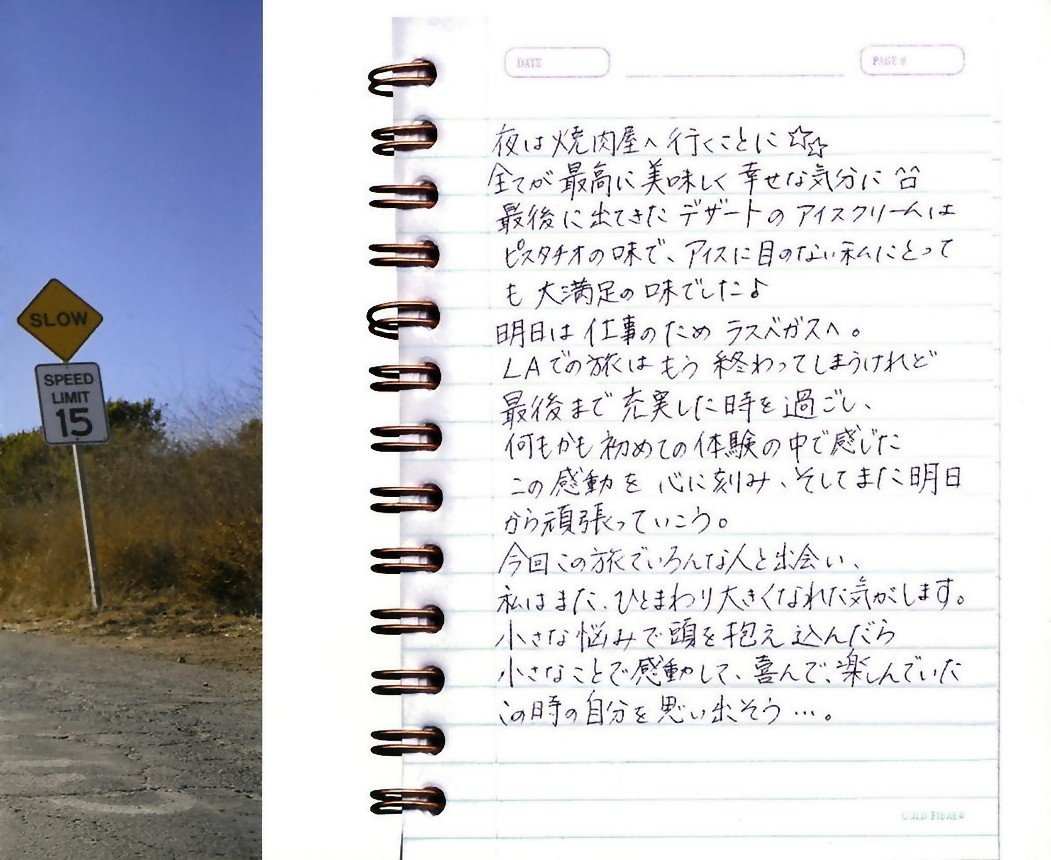 SLOW
SPEED
LIMIT
15
DATE
PAGE #
夜は焼肉屋へ行くことに☆☆
全てが最高に美味しく幸せな気分に^^
最後に出てきたデザートのアイスクリームは
ピスタチオの味で、アイスに目のない私にとって
も大満足の味でした♪
明日は仕事のためラスベガスへ。
LAでの旅はもう終わってしまうけれど
最後まで充実した時を過ごし、
何もかも初めての体験の中で感じた
この感動を心に刻み、そしてまた明日
から頑張っていこう。
今回この旅でいろんな人と出会い、
私はまた、ひとまわり大きくなれた気がします。
小さな悩みで頭を抱え込んだら
小さなことで感動して、喜んで、楽しんでいた
この時の自分を思い出そう…。
GOLD FIBRE®